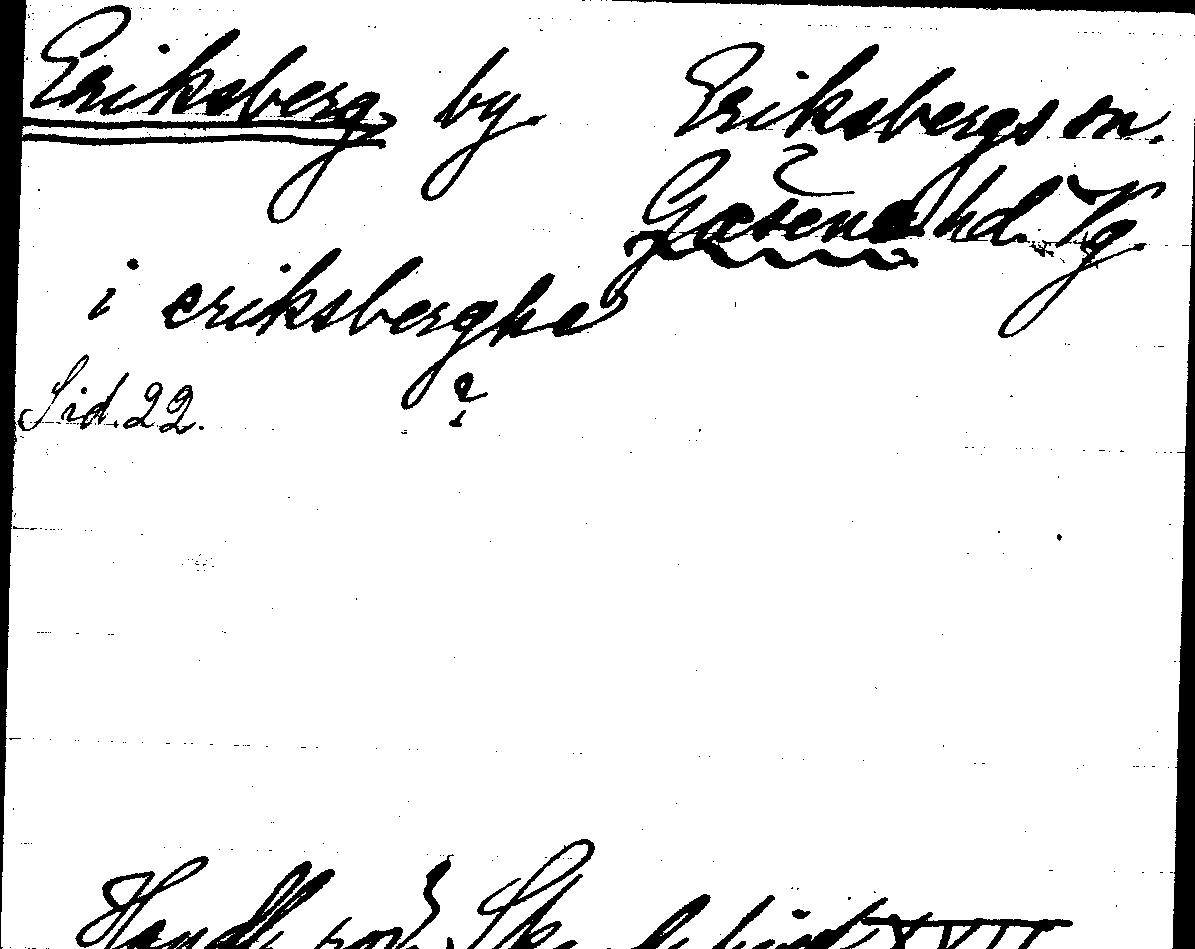 Eriksberg, by. Eriksbergs sn.
Gäsene hd. Vg.
i eriksberghe
?
Sid. 22.
Handl. rör. Sk
XVII